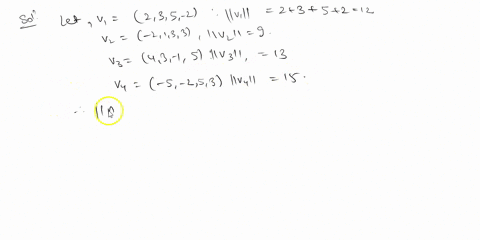 Solⁿ Let, v₁ = (2,3,5,-2) ∴ ||v₁|| = 2+3+5+2=12
v₂ = (-2,1,3,3), ||v₂|| = 9.
v₃ = (4,3,-1, 5) ||v₃||, = 13
v₄ = (-5,-2,5,3) ||v₄|| = 15.
∴ ||